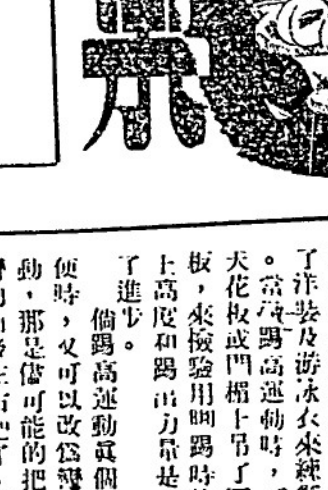 了洋裝及游泳衣來練
。當踢高運動時,
天花板或門楣上吊了
板,來檢驗用脚踢時
上高度和踢出力量是
了進步。
倘踢高運動眞個
便時,又可以改爲彎
動,那是儘可能的把